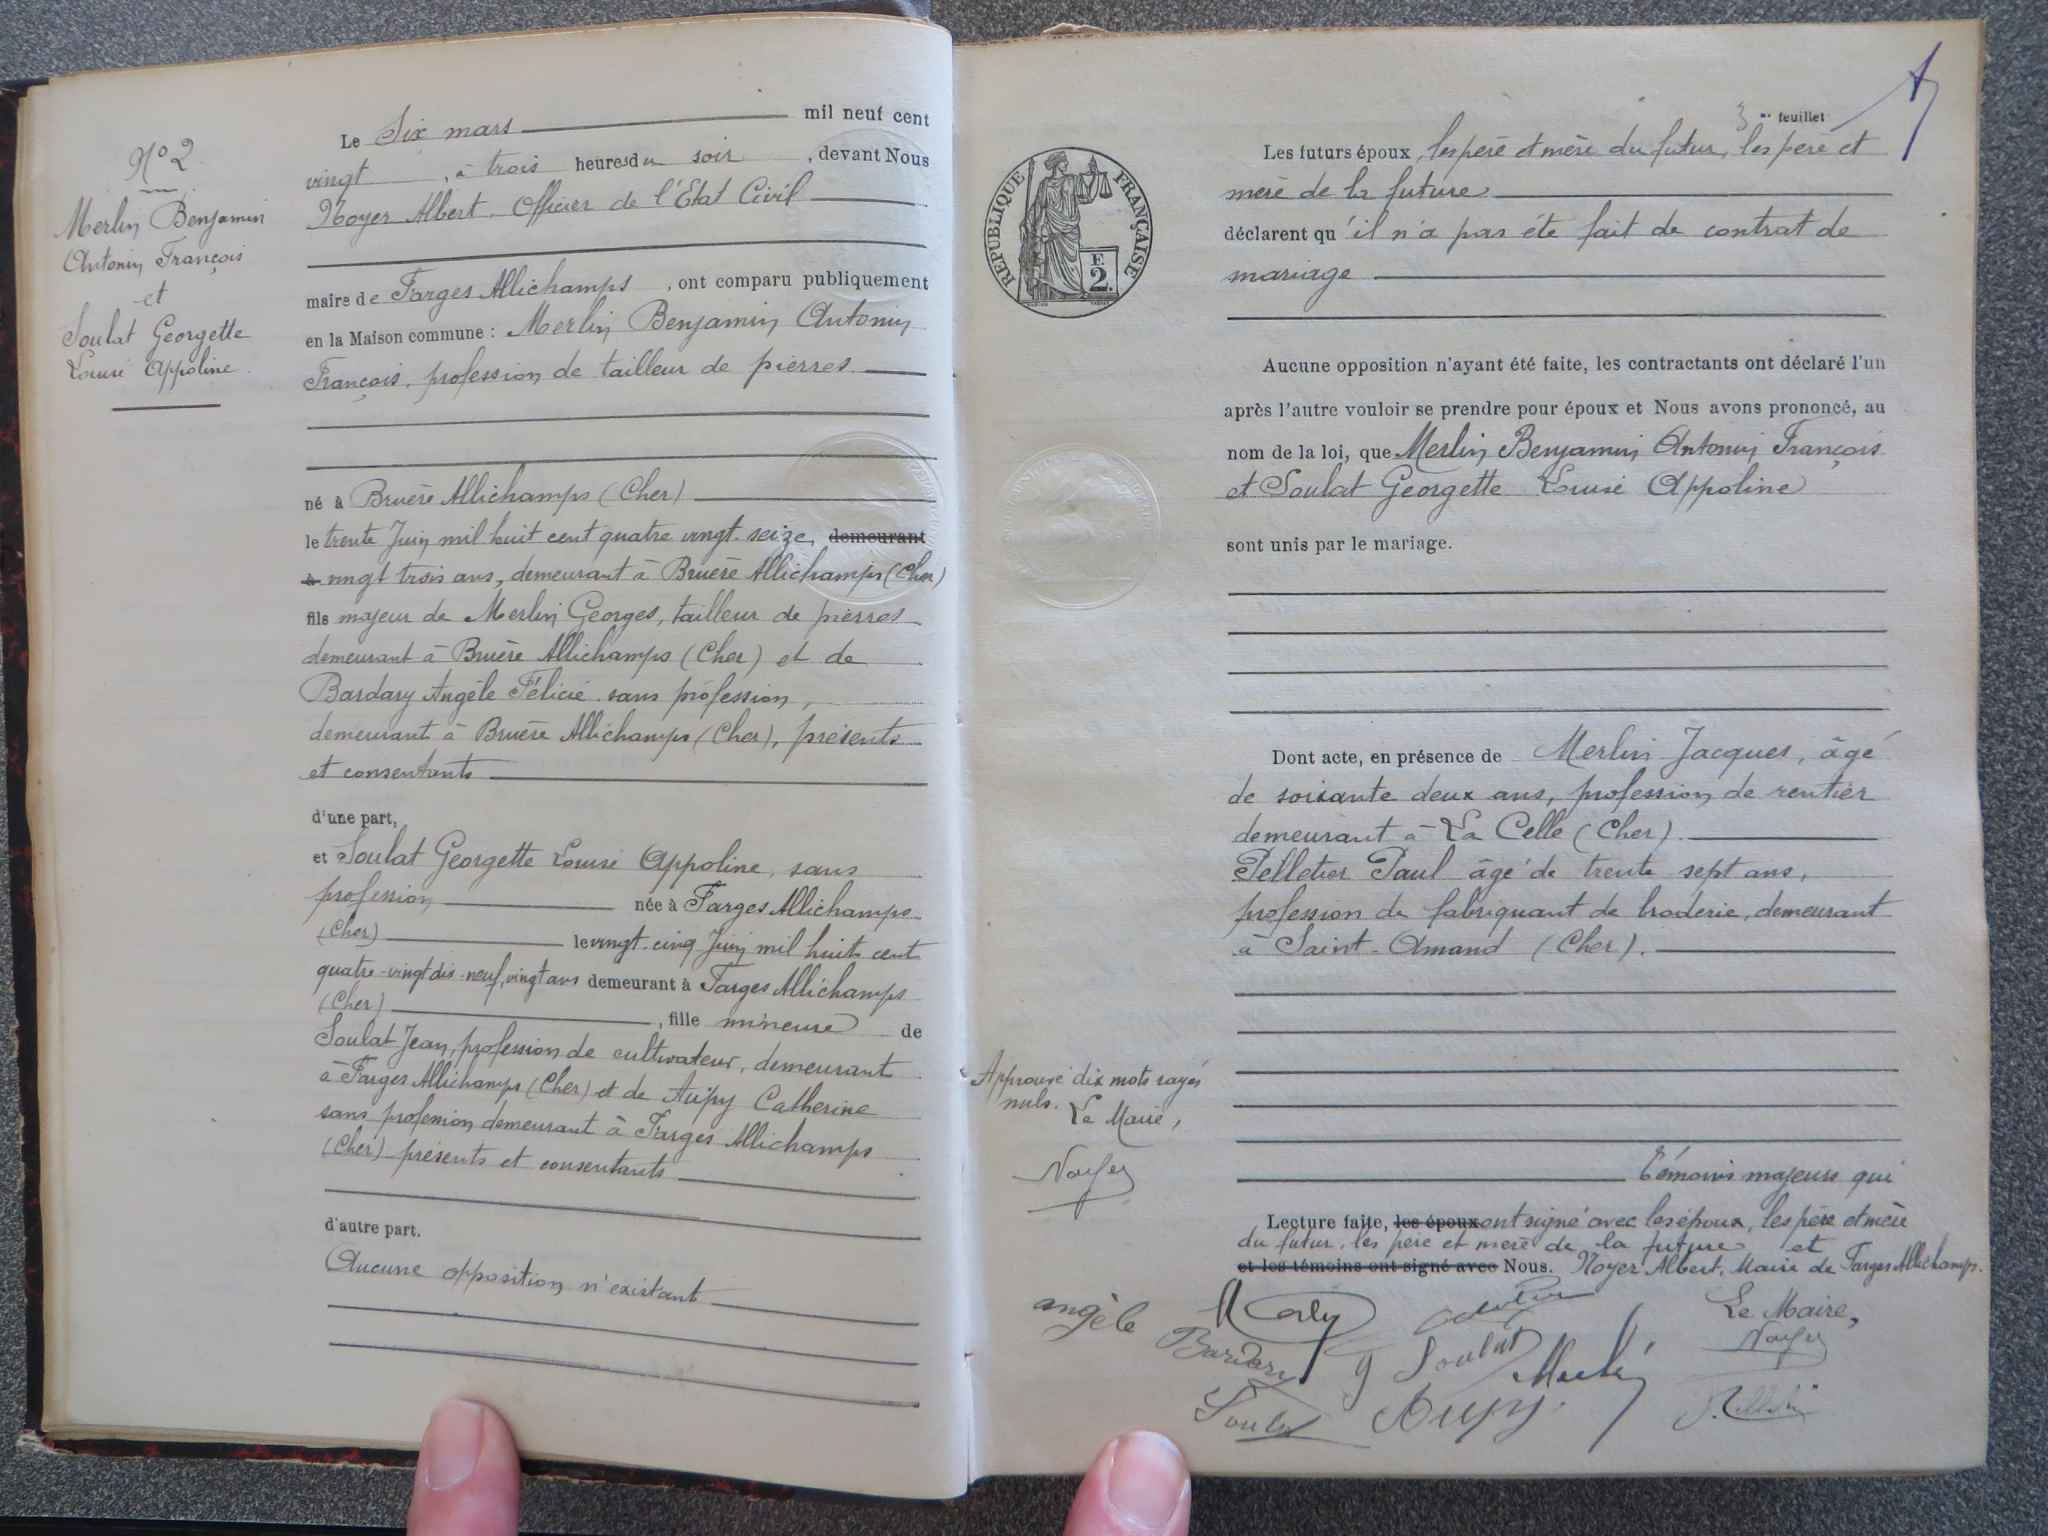 N° 2
Merlin Benjamin
Antonin François
et
Soulat Georgette
Louise Appoline
Le Six mars mil neuf cent
vingt, à trois heures du soir, devant Nous
Noyer Albert. Officier de l'Etat Civil
maire de Farges Allichamps, ont comparu publiquement
en la Maison commune : Merlin Benjamin Antonin
François, profession de tailleur de pierres
né à Bruère Allichamps (Cher)
le trente Juin mil huit cent quatre vingt-seize, demeurant
à vingt trois ans, demeurant à Bruère Allichamps (Cher)
fils majeur de Merlin Georges, tailleur de pierres
demeurant à Bruère Allichamps (Cher) et de
Bardary Angèle Félicie sans profession,
demeurant à Bruère Allichamps (Cher), présents
et consentants
d'une part,
et Soulat Georgette Louise Appoline, sans
profession née à Farges Allichamps
(Cher) le vingt-cinq Juin mil huit cent
quatre-vingt dix-neuf, vingt ans demeurant à Farges Allichamps
(Cher), fille mineure de
Soulat Jean, profession de cultivateur, demeurant
à Farges Allichamps (Cher) et de Aupy Catherine
sans profession demeurant à Farges Allichamps
(Cher) présents et consentants
d'autre part.
Aucune opposition n'existant
3me feuillet
RÉPUBLIQUE FRANÇAISE
F.
2.
Les futurs époux, les père et mère du futur, les père et
mère de la future
déclarent qu'il n'a pas été fait de contrat de
mariage
Aucune opposition n'ayant été faite, les contractants ont déclaré l'un
après l'autre vouloir se prendre pour époux et Nous avons prononcé, au
nom de la loi, que Merlin Benjamin Antonin François
et Soulat Georgette Louise Appoline
sont unis par le mariage.
Dont acte, en présence de Merlin Jacques, âgé
de soixante deux ans, profession de rentier
demeurant à La Celle (Cher).
Pelletier Paul âgé de trente sept ans,
profession de fabriquant de broderie, demeurant
à Saint-Amand (Cher).
Approuvé dix mots rayés
nuls. Le Maire,
Noyer
témoins majeurs qui
Lecture faite, les époux ont signé avec les époux, les père et mère
du futur, les père et mère de la future et
et les témoins ont signé avec Nous. Noyer Albert, Maire de Farges Allichamps.
Angèle
Bardary
g Soulat
Le Maire,
Noyer
Soulat
Aupy